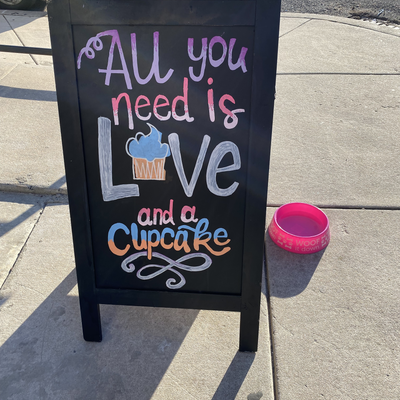 All you
need is
Love
and a
Cupcake
WOOF